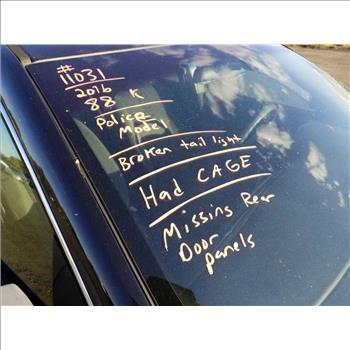 # 11031
2016
88 K
Police
Model
Broken tail light
Had CAGE
Missins Rear
Door
panels